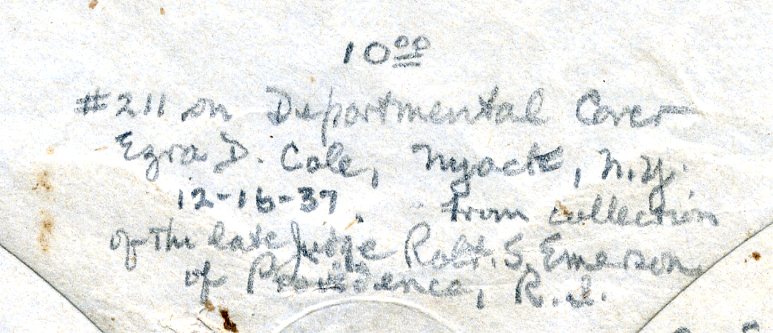 10.00
#211 on Departmental Cover
Ezra D. Cole, Nyack, N.Y.
12-16-37. From collection
of the late Judge Robt. S. Emerson
of Providence, R.I.